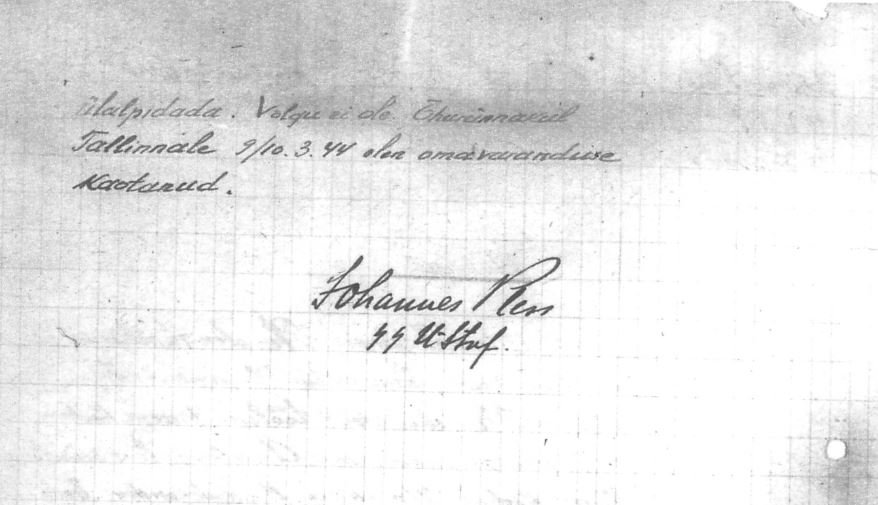 ülalpidada. Volgu ei ole. Õhurünnakul
Tallinnale 9/10.3.44 olen omavaranduse
Kaotanud.
Johannes
SS U-Stuf.